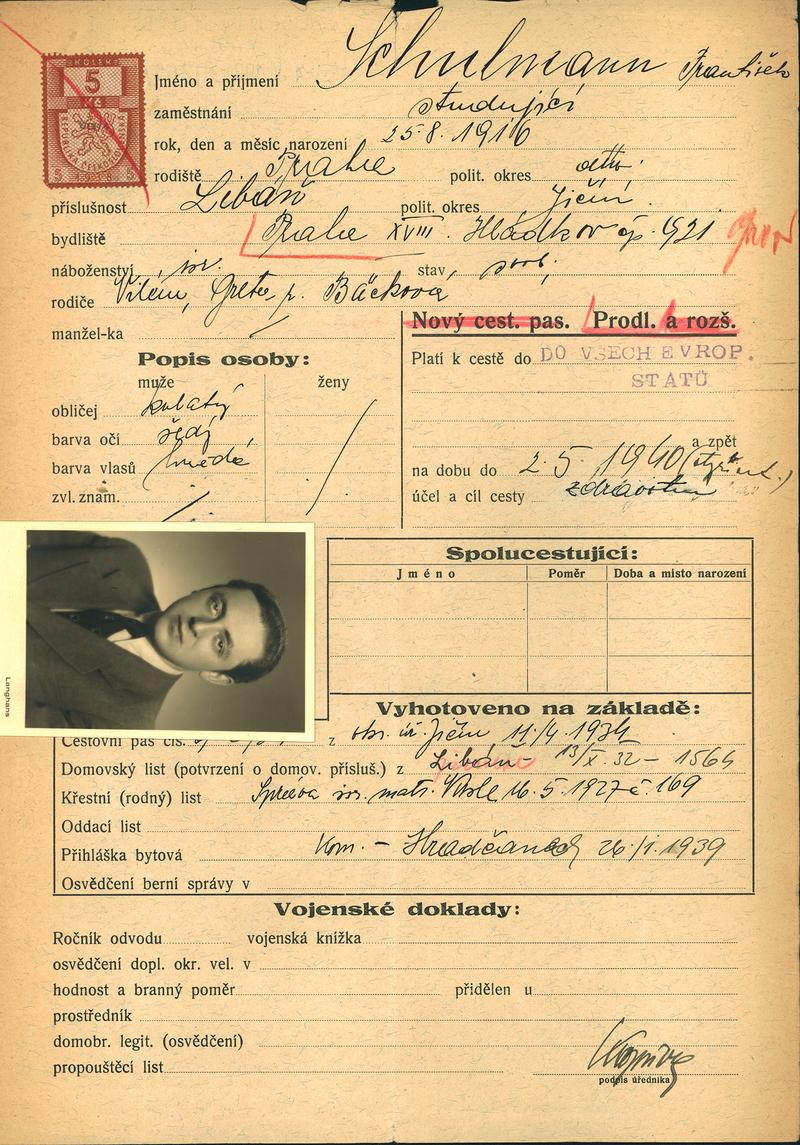 KOLEK
5
Kč
REPUBLIKA ČESKOSLOVENSKÁ
5 1938 5
Jméno a příjmení Schulmann František
zaměstnání studující
rok, den a měsíc narození 25.8.1916
rodiště Praha polit. okres
příslušnost Libáň polit. okres Jičín
bydliště Praha XVIII. čp. 921
náboženství isr. stav svob.
rodiče Vilém, Greta r. Bäcková
manžel-ka
Nový cest. pas. Prodl. a rozš.
Popis osoby:
muže ženy
obličej kulatý
barva očí šedý
barva vlasů hnědé
zvl. znam.
Platí k cestě do DO VŠECH EVROP.
STÁTŮ
a zpět
na dobu do 2.5.1940
účel a cíl cesty
Langhans
Spolucestující:
Jméno Poměr Doba a místo narození
Vyhotoveno na základě:
Cestovní pas čís. z Jičín 11/4. 1934
Domovský list (potvrzení o domov. přísluš.) z Libáň 13/X. 32 - 1564
Křestní (rodný) list Správa isr. matr. 16.5.1927 č. 169
Oddací list
Přihláška bytová Kom. - Hradčanech 26/1. 1939
Osvědčení berní správy v
Vojenské doklady:
Ročník odvodu vojenská knížka
osvědčení dopl. okr. vel. v
hodnost a branný poměr přidělen u
prostředník
domobr. legit. (osvědčení)
propouštěcí list
podpis úředníka